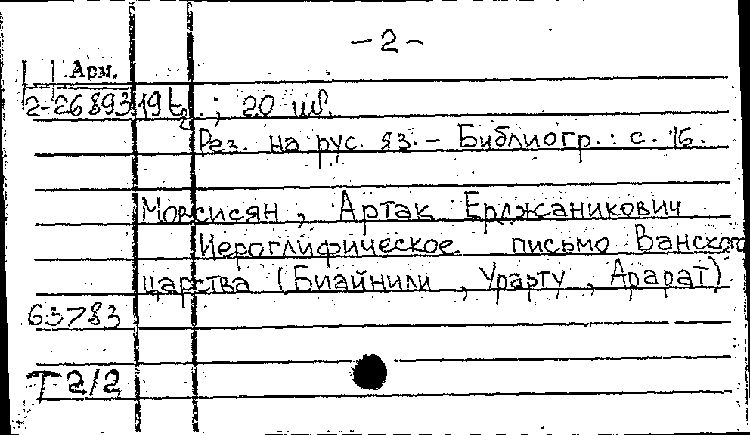 -2-
Арм.
2-26893 19 էջ. ; 20 սմ.
Рез. на рус. яз. - Библиогр.: с. 16.
Мовсисян, Артак Ерджаникович
Иероглифическое письмо Ванского
царства (Биайнили, Урарту, Арарат)
63783
T 2/2